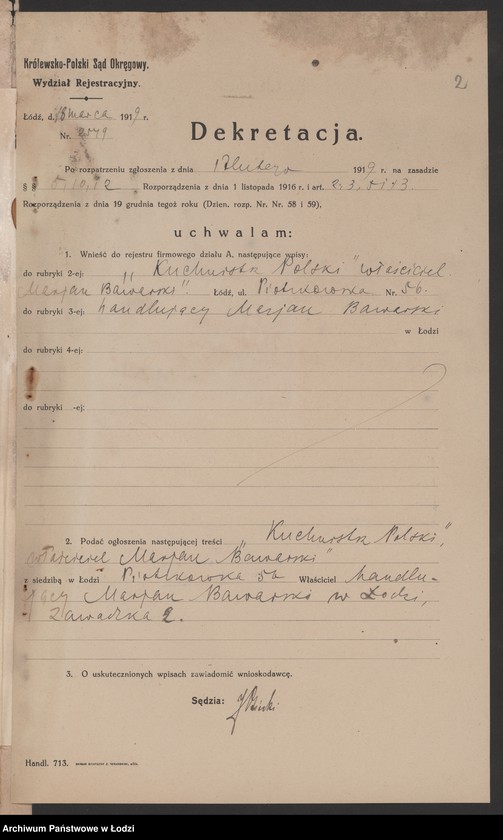 Królewsko-Polski Sąd Okręgowy.
Wydział Rejestracyjny.
2
Łódź, d. 18 marca 1919 r.
Nr. 2579
Dekretacja.
Po rozpatrzeniu zgłoszenia z dnia 12 lutego 1919 r. na zasadzie
§ § 5, 10, 12 Rozporządzenia z dnia 1 listopada 1916 r. i art. 2, 3, 5 i 13
Rozporządzenia z dnia 19 grudnia tegoż roku (Dzien. rozp. Nr. Nr. 58 i 59),
uchwalam:
1. Wnieść do rejestru firmowego działu A. następujące wpisy:
do rubryki 2-ej: „Kuchnista Polski" właściciel
Marjan Bawarski". Łódź, ul. Piotrkowska Nr. 56.
do rubryki 3-ej: handlujący Marjan Bawarski
w Łodzi
do rubryki 4-ej:
do rubryki -ej:
2. Podać ogłoszenia następującej treści „Kuchnista Polski",
właściciel Marjan Bawarski"
z siedzibą w Łodzi Piotrkowska 56 Właściciel handlu-
jący Marjan Bawarski w Łodzi,
Zawadzka 2.
3. O uskutecznionych wpisach zawiadomić wnioskodawcę.
Sędzia:
Handl. 713.
Archiwum Państwowe w Łodzi